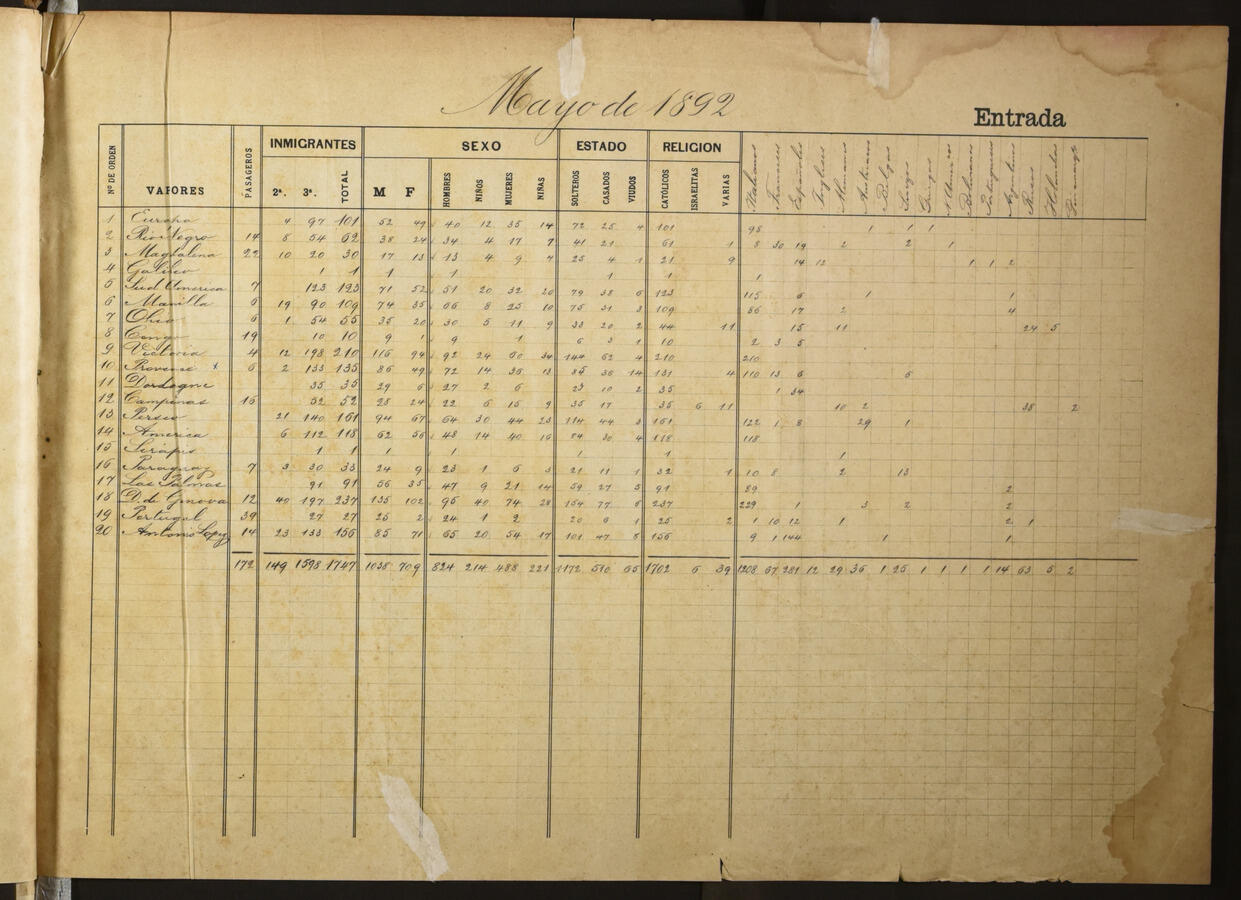 Mayo de 1892
Entrada
Nº DE ORDEN VAPORES PASAGEROS INMIGRANTES SEXO ESTADO RELIGION
2ª. 3ª. TOTAL M F HOMBRES NIÑOS MUJERES NIÑAS SOLTEROS CASADOS VIUDOS CATÓLICOS ISRAELITAS VARIAS Italianos Franceses Españoles Ingleses Alemanes Belgas Suizos Griegos Portugueses Argentinos Rusos
1 Europa 4 97 101 52 49 40 12 35 14 72 25 4 101 98 1 1 1
2 Rio Negro 14 8 54 62 38 24 34 4 17 7 41 21 61 1 8 30 19 2 2 1
3 Magdalena 22 10 20 30 17 13 13 4 9 4 25 4 1 21 9 14 12 1 1 2
4 Galileo 1 1 1 1 1 1 1
5 Sud America 7 123 123 71 52 51 20 32 20 79 38 6 123 115 6 1 1
6 Manilla 6 19 90 109 74 35 66 8 25 10 75 31 3 109 86 17 2 4
7 Ohio 6 1 54 55 35 20 30 5 11 9 33 20 2 44 11 15 11 24 5
8 Congo 19 10 10 9 1 9 1 6 3 1 10 2 3 5
9 Victoria 4 12 198 210 116 94 92 24 60 34 144 62 4 210 210
10 Provence x 6 2 133 135 86 49 72 14 36 13 85 36 14 131 4 110 13 6 6
11 Dordogne 35 35 29 6 27 2 6 23 10 2 35 1 34
12 Campinas 16 52 52 28 24 22 6 15 9 35 17 35 6 11 10 2 38 2
13 Perseo 21 140 161 94 67 64 30 44 23 114 44 3 161 122 1 8 29 1
14 America 6 112 118 62 56 48 14 40 16 84 30 4 118 118
15 Serapis 1 1 1 1 1 1 1
16 Paraguay 7 3 30 33 24 9 23 1 6 3 21 11 1 32 1 10 8 2 13
17 Las Palmas 91 91 56 35 47 9 21 14 59 27 5 91 89 2
18 D. de Genova 12 40 197 237 135 102 95 40 74 28 154 77 6 237 229 1 3 2 2
19 Portugal 39 27 27 25 2 24 1 2 20 6 1 25 2 1 10 12 1 2 1
20 Antonio Lopez 14 23 133 156 85 71 65 20 54 17 101 47 8 156 9 1 144 1 1
172 149 1598 1747 1038 709 824 214 488 221 1172 510 65 1702 6 39 1208 67 281 12 29 36 1 25 1 1 1 1 14 63 5 2